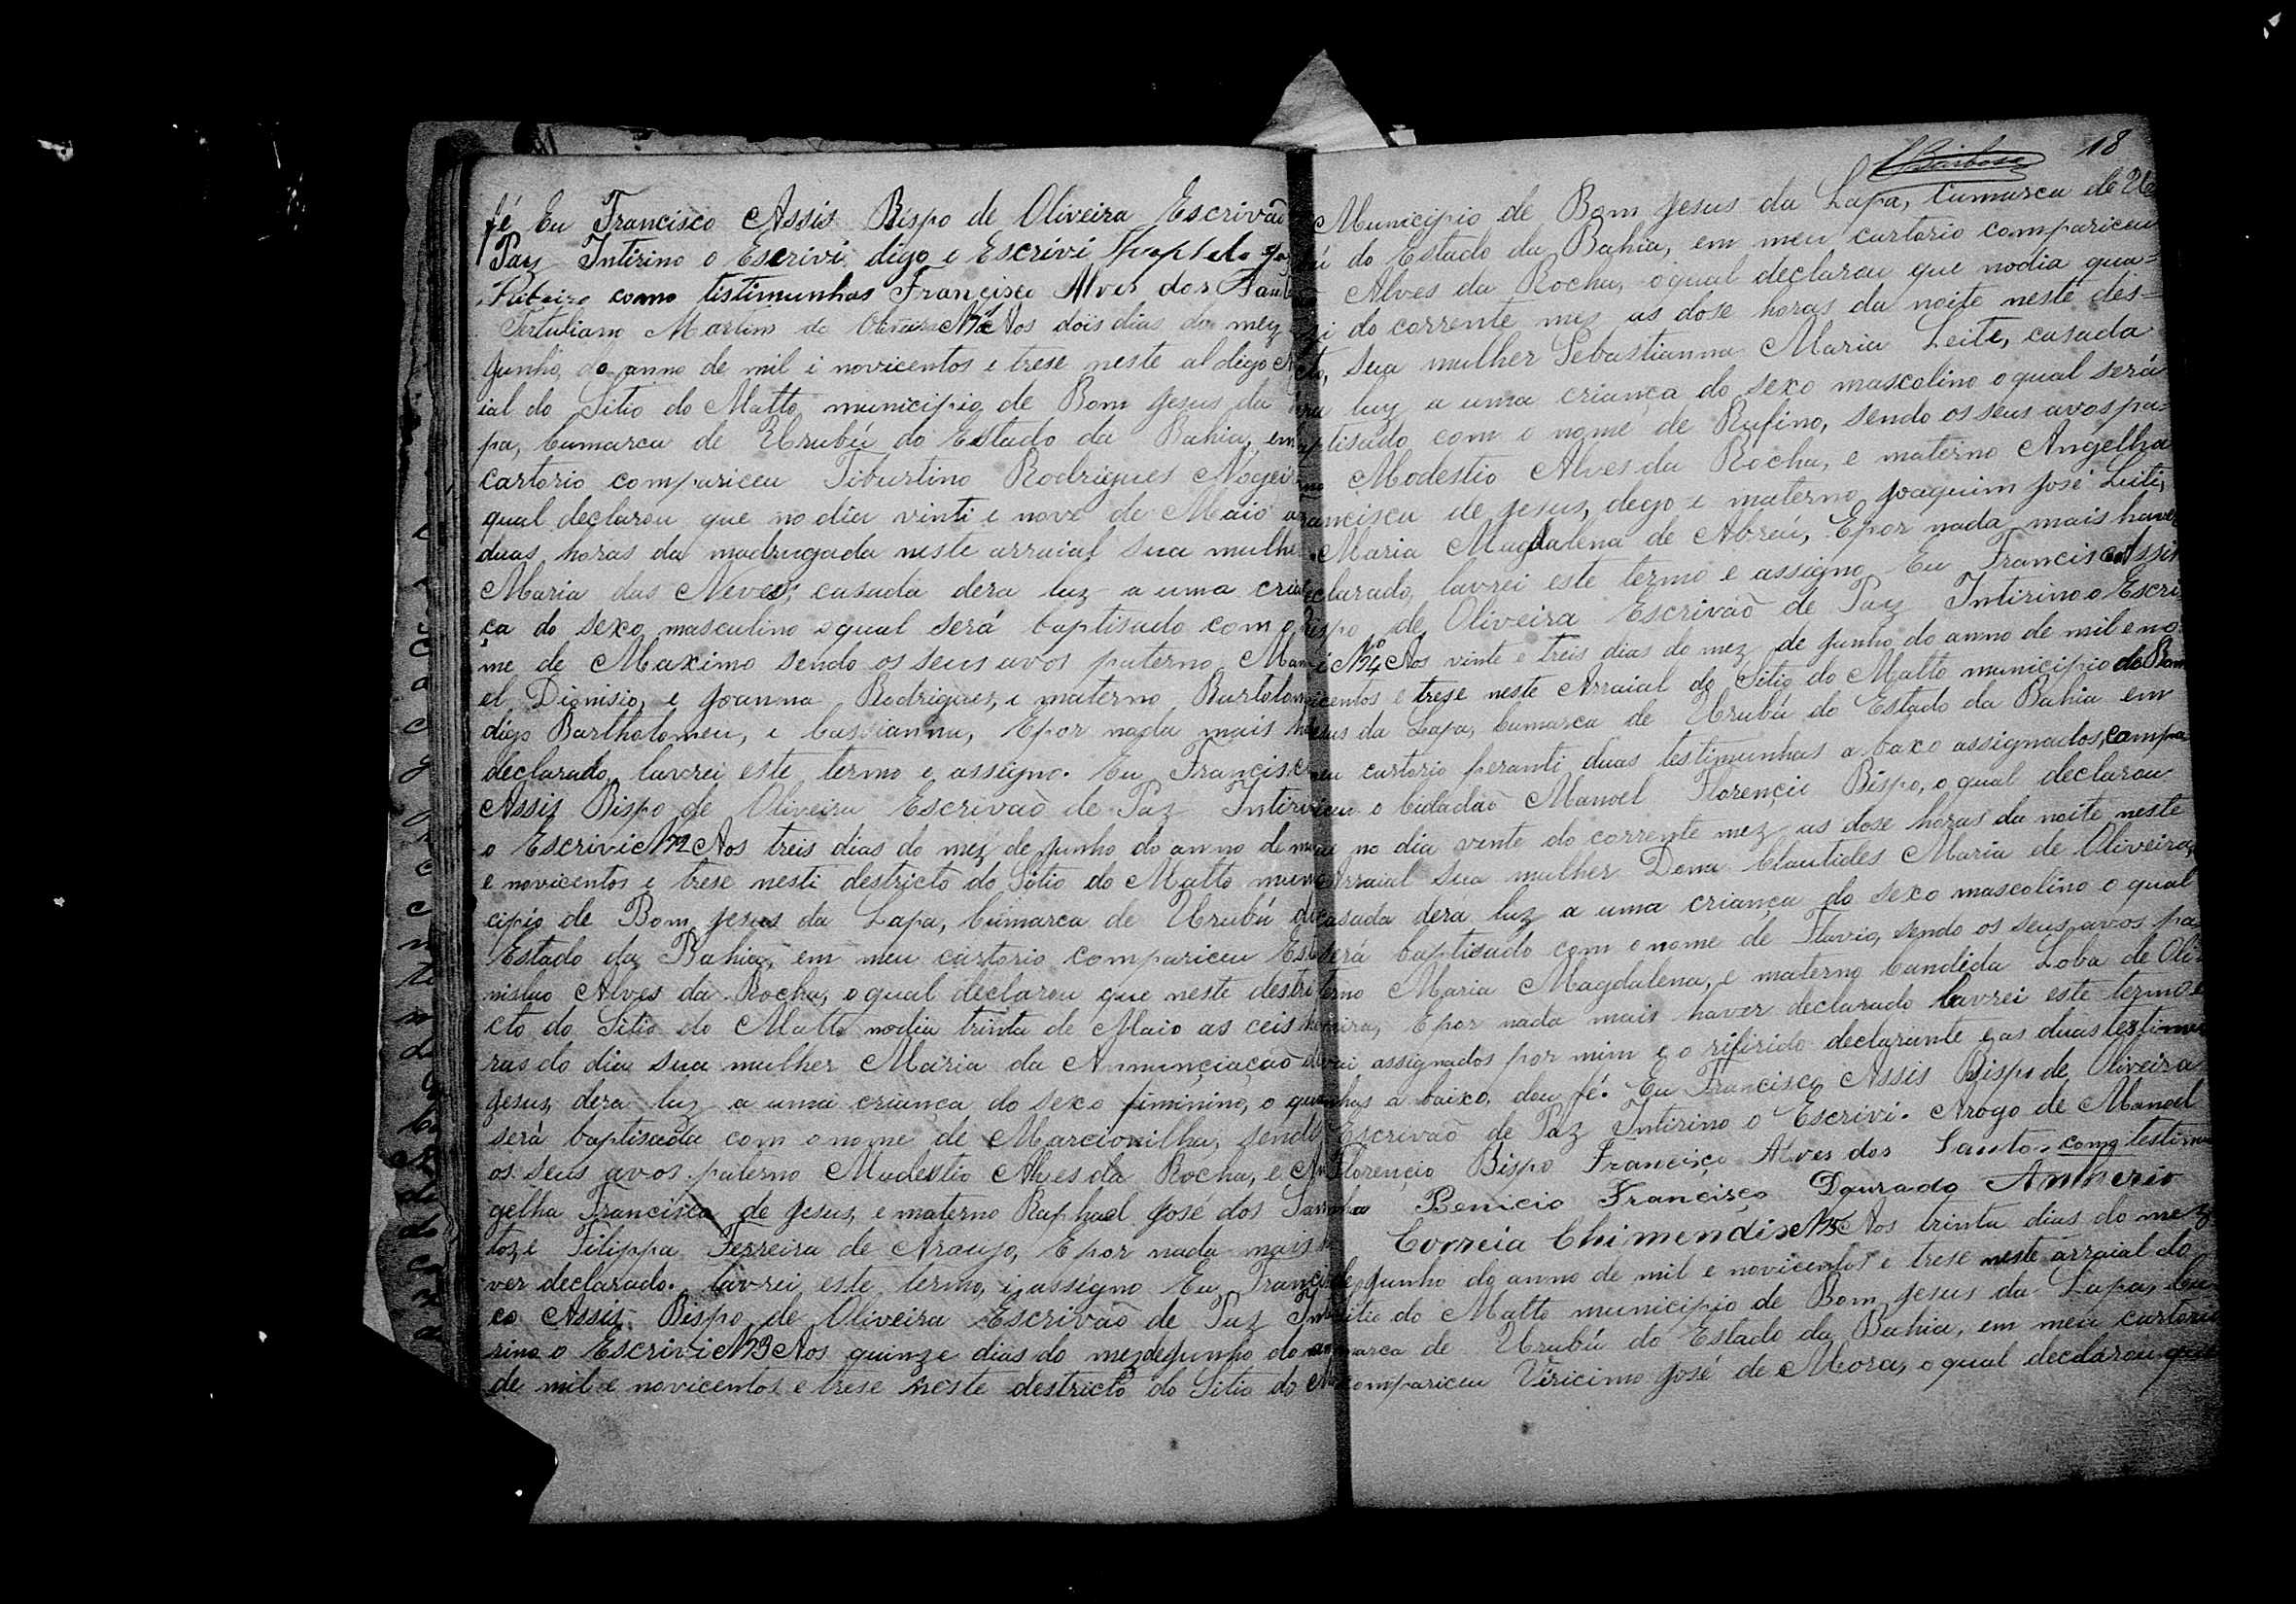 fé Eu Francisco Assis Bispo de Oliveira Escrivaõ
Paz Intirino o Escrivi digo o Escrivi
Ribeiro como tistimunhas Francisco Alves dos Sant
Tertuliano Martins de Oliveira Nº71 Aos dois dias do mez
Junho do anno de mil i novicentos e trese neste al digo
ial do Sitio do Matto municipio de Bom Jesus da
pa, Cumarca de Urubú do Estado da Bahia, em
cartorio compariceu Tiburtino Rodrigues Nogeir
qual declarou que no dia vinti e nove de Maio as
duas horas da madrugada neste arraial sua mulhe
Maria das Neves, casada dera luz a uma crian
ça do sexo masculino o qual será baptisado com o
me de Maximo sendo os seus avos paterno Man
el Dionisio, e Joanna Rodrigues, e materno Burtolom
digo Bartholomeu, e Cassianna, Epor nada mais ha
declarado, lavrei este termo e assigno. Eu Francisc
Assis Bispo de Oliveira Escrivaõ de Paz Intiri
o Escrivi Nº72 Aos treis dias do mez de Junho do anno de m
e novicentos e trese nesti destricto do Sitio do Matto muni
cipio de Bom Jesus da Lapa, Cumarca de Urubú do
Estado da Bahia, em meu cartorio compariceu Est
nislao Alves da Rocha, o qual declarou que neste destri
cto do Sitio do Matto no dia trinta de Maio as ceis ho
ras do dia sua mulher Maria da Annunciaçaõ de
Jesus, dera luz a uma criança do sexo fiminino, o qua
será baptisada com o nome de Marcionilha, sendo
os seus avos paterno Mudestio Alves da Rocha, e An
gelha Francisca de Jesus, e materno Raphael José dos San
toz e Filippa Ferreira de Araujo, Epor nada mais ha
ver declarado. lavrei este termo, i assigno Eu Franci
co Assis Bispo de Oliveira Escrivaõ de Paz Inti
rino o Escrivi Nº73 Aos quinze dias do mez de Junho do an
de mil e novicentos e trese neste destricto do Sitio do Ma
Barbosa 18
Municipio de Bom Jesus da Lapa, Cumarca de Ur
ú do Estado da Bahia, em meu cartorio compariceu
Alves da Rocha, o qual declarou que nodia qua=
do corrente mez as dose horas da noite neste des=
to, sua mulher Sebastianna Maria Leite, casada
ra luz a uma criança do sexo mascolino o qual será
ptisado com o nome de Rufino, sendo os seus avos pa=
no Modestio Alves da Rocha, e materno Angelha
rancisca de Jesus, dego e materno Joaquim José Leiti,
Maria Magdalena de Abreú, Epor nada mais haver
clarado, lavrei este termo e assigno Eu Francisco Assis
ispo de Oliveira Escrivaõ de Paz Intirino o Escri
i Nº74 Aos vinte e treis dias do mez de Junho do anno de mil e no
icentos e trese neste Arraial do Sitio do Matto municipio do Bom
esus da Lapa, Cumarca de Urubú do Estado da Bahia em
eu cartorio peranti duas testimunhas a baxo assignados, compa
iceu o Cidadaõ Manoel Florençio Bispo, o qual declarou
ue no dia vente do corrente mez as dose horas da noite neste
Arraial sua mulher Dona Clautides Maria de Oliveira,
casada dera luz a uma criança do sexo mascolino o qual
será baptisado com o nome de Flavio, sendo os seus avos pa
terno Maria Magdalena, e materno Candida Loba de Oli
veira, Epor nada mais haver declarado lavrei este termo e
vai assignados por mim e o rifirido declarante e as duas testimu
nhas a baixo, dou fé. Eu Francisco Assis Bispo de Oliveira
Escrivaõ de Paz Intirino o Escrivi. Arogo de Manoel
Florençio Bispo Francisco Alves dos Santos como testimu
nhas Benicio Francisco Dourado Americo
Correia Chimendis Nº75 Aos trinta dias do mez
de Junho do anno de mil e novicentos e trese neste arraial do
Sitio do Matto municipio de Bom Jesus da Lapa, Cu
marca de Urubú do Estado da Bahia, em meu cartorio
compariceu Viricimo José de Mora, o qual declarou que